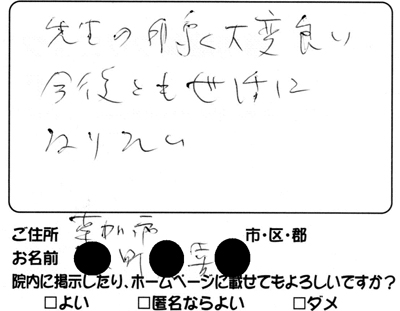 先生の印象大変良い
今後ともぜひ
なりたい
ご住所 草加市 市・区・郡
お名前 町
院内に掲示したり、ホームページに載せてもよろしいですか？
□よい □匿名ならよい □ダメ